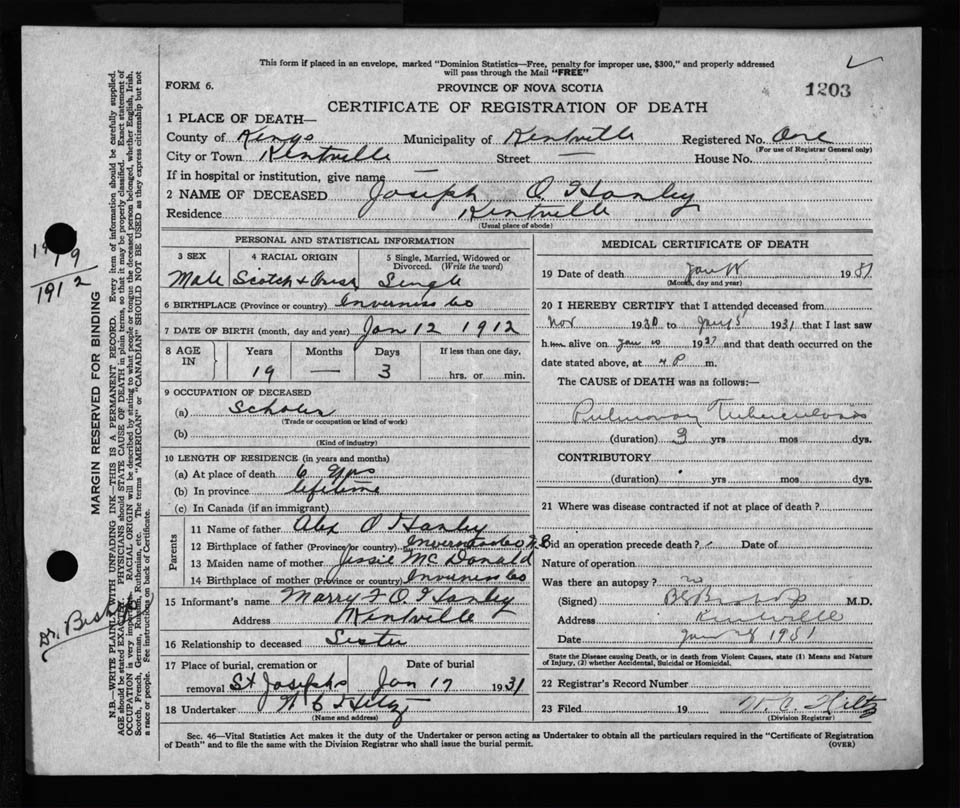 This form if placed in an envelope, marked "Dominion Statistics—Free, penalty for improper use, $300," and properly addressed
will pass through the Mail "FREE"
FORM 6.
PROVINCE OF NOVA SCOTIA
1203
CERTIFICATE OF REGISTRATION OF DEATH
1 PLACE OF DEATH—
County of Kings Municipality of Kentville Registered No. One
(For use of Registrar General only)
City or Town Kentville Street — House No.
If in hospital or institution, give name —
2 NAME OF DECEASED Joseph O'Hanley
Residence Kentville
(Usual place of abode)
PERSONAL AND STATISTICAL INFORMATION
3 SEX
4 RACIAL ORIGIN
5 Single, Married, Widowed or Divorced. (Write the word)
Male Scotch & Irish Single
6 BIRTHPLACE (Province or country) Inverness Co
7 DATE OF BIRTH (month, day and year) Jan 12 1912
8 AGE IN
Years Months Days If less than one day,
19 — 3 hrs. or min.
9 OCCUPATION OF DECEASED
(a) Scholar
(Trade or occupation or kind of work)
(b)
(Kind of industry)
10 LENGTH OF RESIDENCE (in years and months)
(a) At place of death 6 yrs
(b) In province lifetime
(c) In Canada (if an immigrant)
Parents
11 Name of father Alex O'Hanley
12 Birthplace of father (Province or country) Inverness Co N.S
13 Maiden name of mother Jessie McDonald
14 Birthplace of mother (Province or country) Inverness Co
15 Informant's name Marry F O'Hanley
Address Kentville
16 Relationship to deceased Sister
17 Place of burial, cremation or removal St Josephs
Date of burial Jan 17 1931
18 Undertaker W C Hiltz
(Name and address)
MEDICAL CERTIFICATE OF DEATH
19 Date of death Jan 1931
(Month, day and year)
20 I HEREBY CERTIFY that I attended deceased from
Nov 1930 to Jany 5 1931 that I last saw
him alive on Jan 10 193 and that death occurred on the
date stated above, at 4 P m.
The CAUSE OF DEATH was as follows:—
Pulmonary Tuberculosis
(duration) 3 yrs mos dys.
CONTRIBUTORY
(duration) yrs mos dys.
21 Where was disease contracted if not at place of death?
Did an operation precede death? Date of
Nature of operation
Was there an autopsy? no
(Signed) B E Bishop M.D.
Address Kentville
Date Jan 1931
State the Disease causing Death, or in death from Violent Causes, state (1) Means and Nature
of Injury, (2) whether Accidental, Suicidal or Homicidal.
22 Registrar's Record Number
23 Filed 19 W. C. Hiltz
(Division Registrar)
Sec. 46—Vital Statistics Act makes it the duty of the Undertaker or person acting as Undertaker to obtain all the particulars required in the "Certificate of Registration
of Death" and to file the same with the Division Registrar who shall issue the burial permit.
(OVER)
MARGIN RESERVED FOR BINDING
N.B.—WRITE PLAINLY WITH UNFADING INK—THIS IS A PERMANENT RECORD. Every item of information should be carefully supplied.
AGE should be stated EXACTLY. PHYSICIANS should STATE CAUSE OF DEATH in plain terms, so that it may be properly classified. Exact statement of
OCCUPATION is very important. RACIAL ORIGIN will be described by stating to what people or tongue the deceased person belonged, whether English, Irish,
Scotch, French, German, Russian, Ruthenian, etc. The terms "AMERICAN" or "CANADIAN" SHOULD NOT BE USED as they express citizenship but not
a race or people. See instructions on back of Certificate.
1912
Dr. Bishop